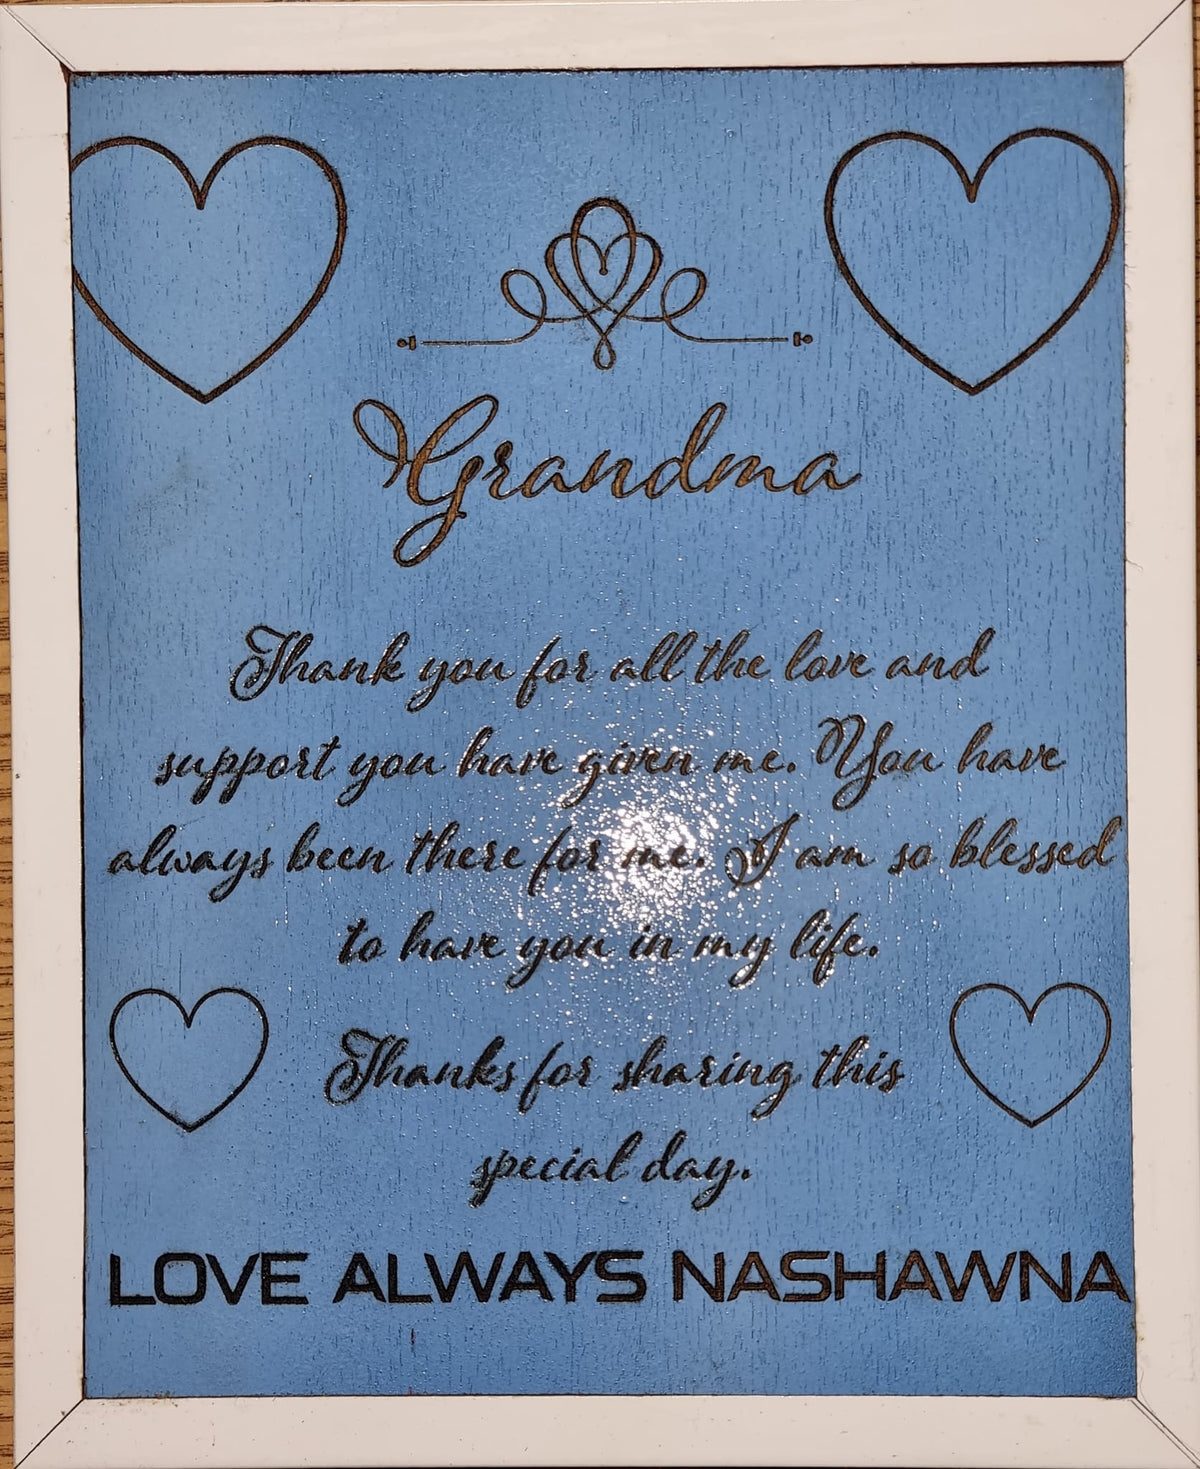 Grandma
Thank you for all the love and
support you have given me. You have
always been there for me. I am so blessed
to have you in my life.
Thanks for sharing this
special day.
LOVE ALWAYS NASHAWNA